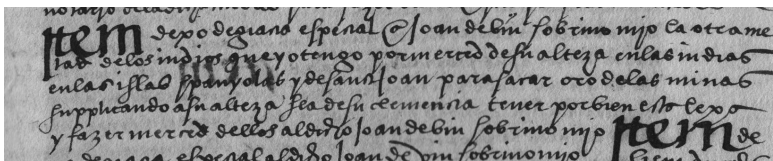 Item dexo de gracia especial a Joan de bin sobrino mjo la otra me
tad delos indios que yo tengo por merced de su alteza en las indias
en las islas spanyolas y de sanct Joan para sacar oro de las minas
supplicando a su alteza sea de su clemencia tener por bien este lexo
y fazer merced dellos al dicho Joan de bin sobrino mjo Item de
especial al dicho Joan de bin sobrino mjo